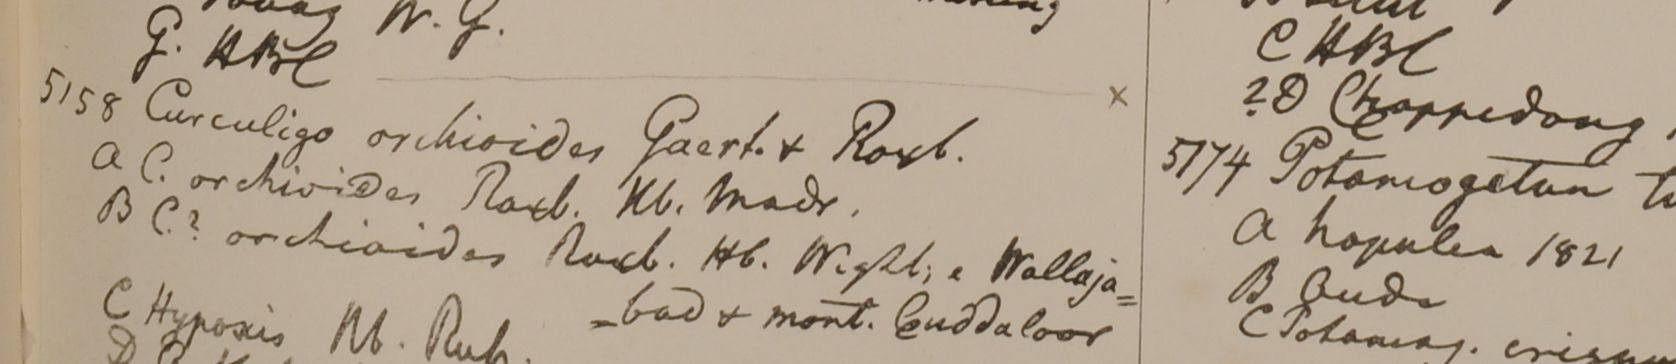 W. G.
G. HBC
5158 Curculigo orchioides Gaert. & Roxb.
A C. orchioides Roxb. Hb. Madr.
B C.? orchioides Roxb. Hb. Wight, e Wallaja=
=bad & mont. Cuddaloor
C Hypoxis Hb. Rub.
D
C HBC
? D Chappedong
5174 Potamogeton
A Napalea 1821
B Oude
C Potamog. crispum